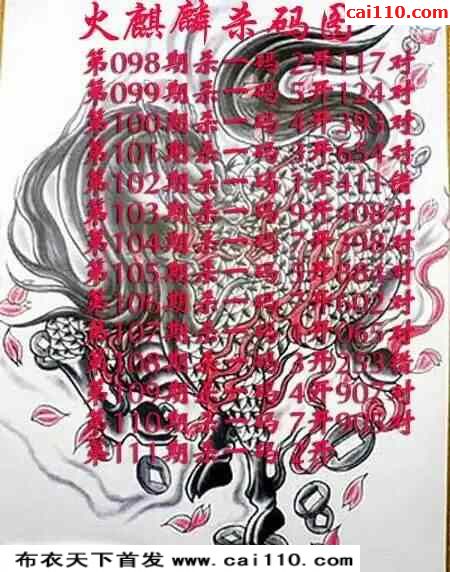 cai110.com
火麒麟杀码图
第098期杀一码 2开117对
第099期杀一码 5开124对
第100期杀一码 4开393对
第101期杀一码 3开654对
第102期杀一码 1开411错
第103期杀一码 9开408对
第104期杀一码 7开398对
第105期杀一码 开884对
第106期杀一码 开602对
第107期杀一码 开065对
第108期杀一码 3开233错
第109期杀一码 4开90 对
第110期杀一码 7开90 对
第111期杀一码 开
布衣天下首发 www.cai110.com